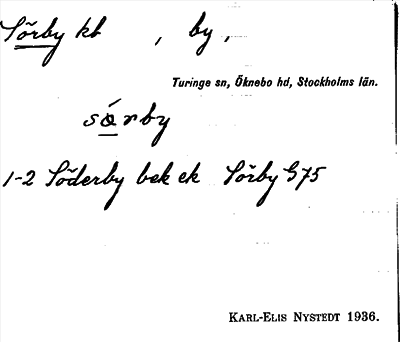 Sörby kb , by,
Turinge sn, Öknebo hd, Stockholms län.
sǿrby
1-2 Söderby bek ek Sörby G75
KARL-ELIS NYSTEDT 1936.